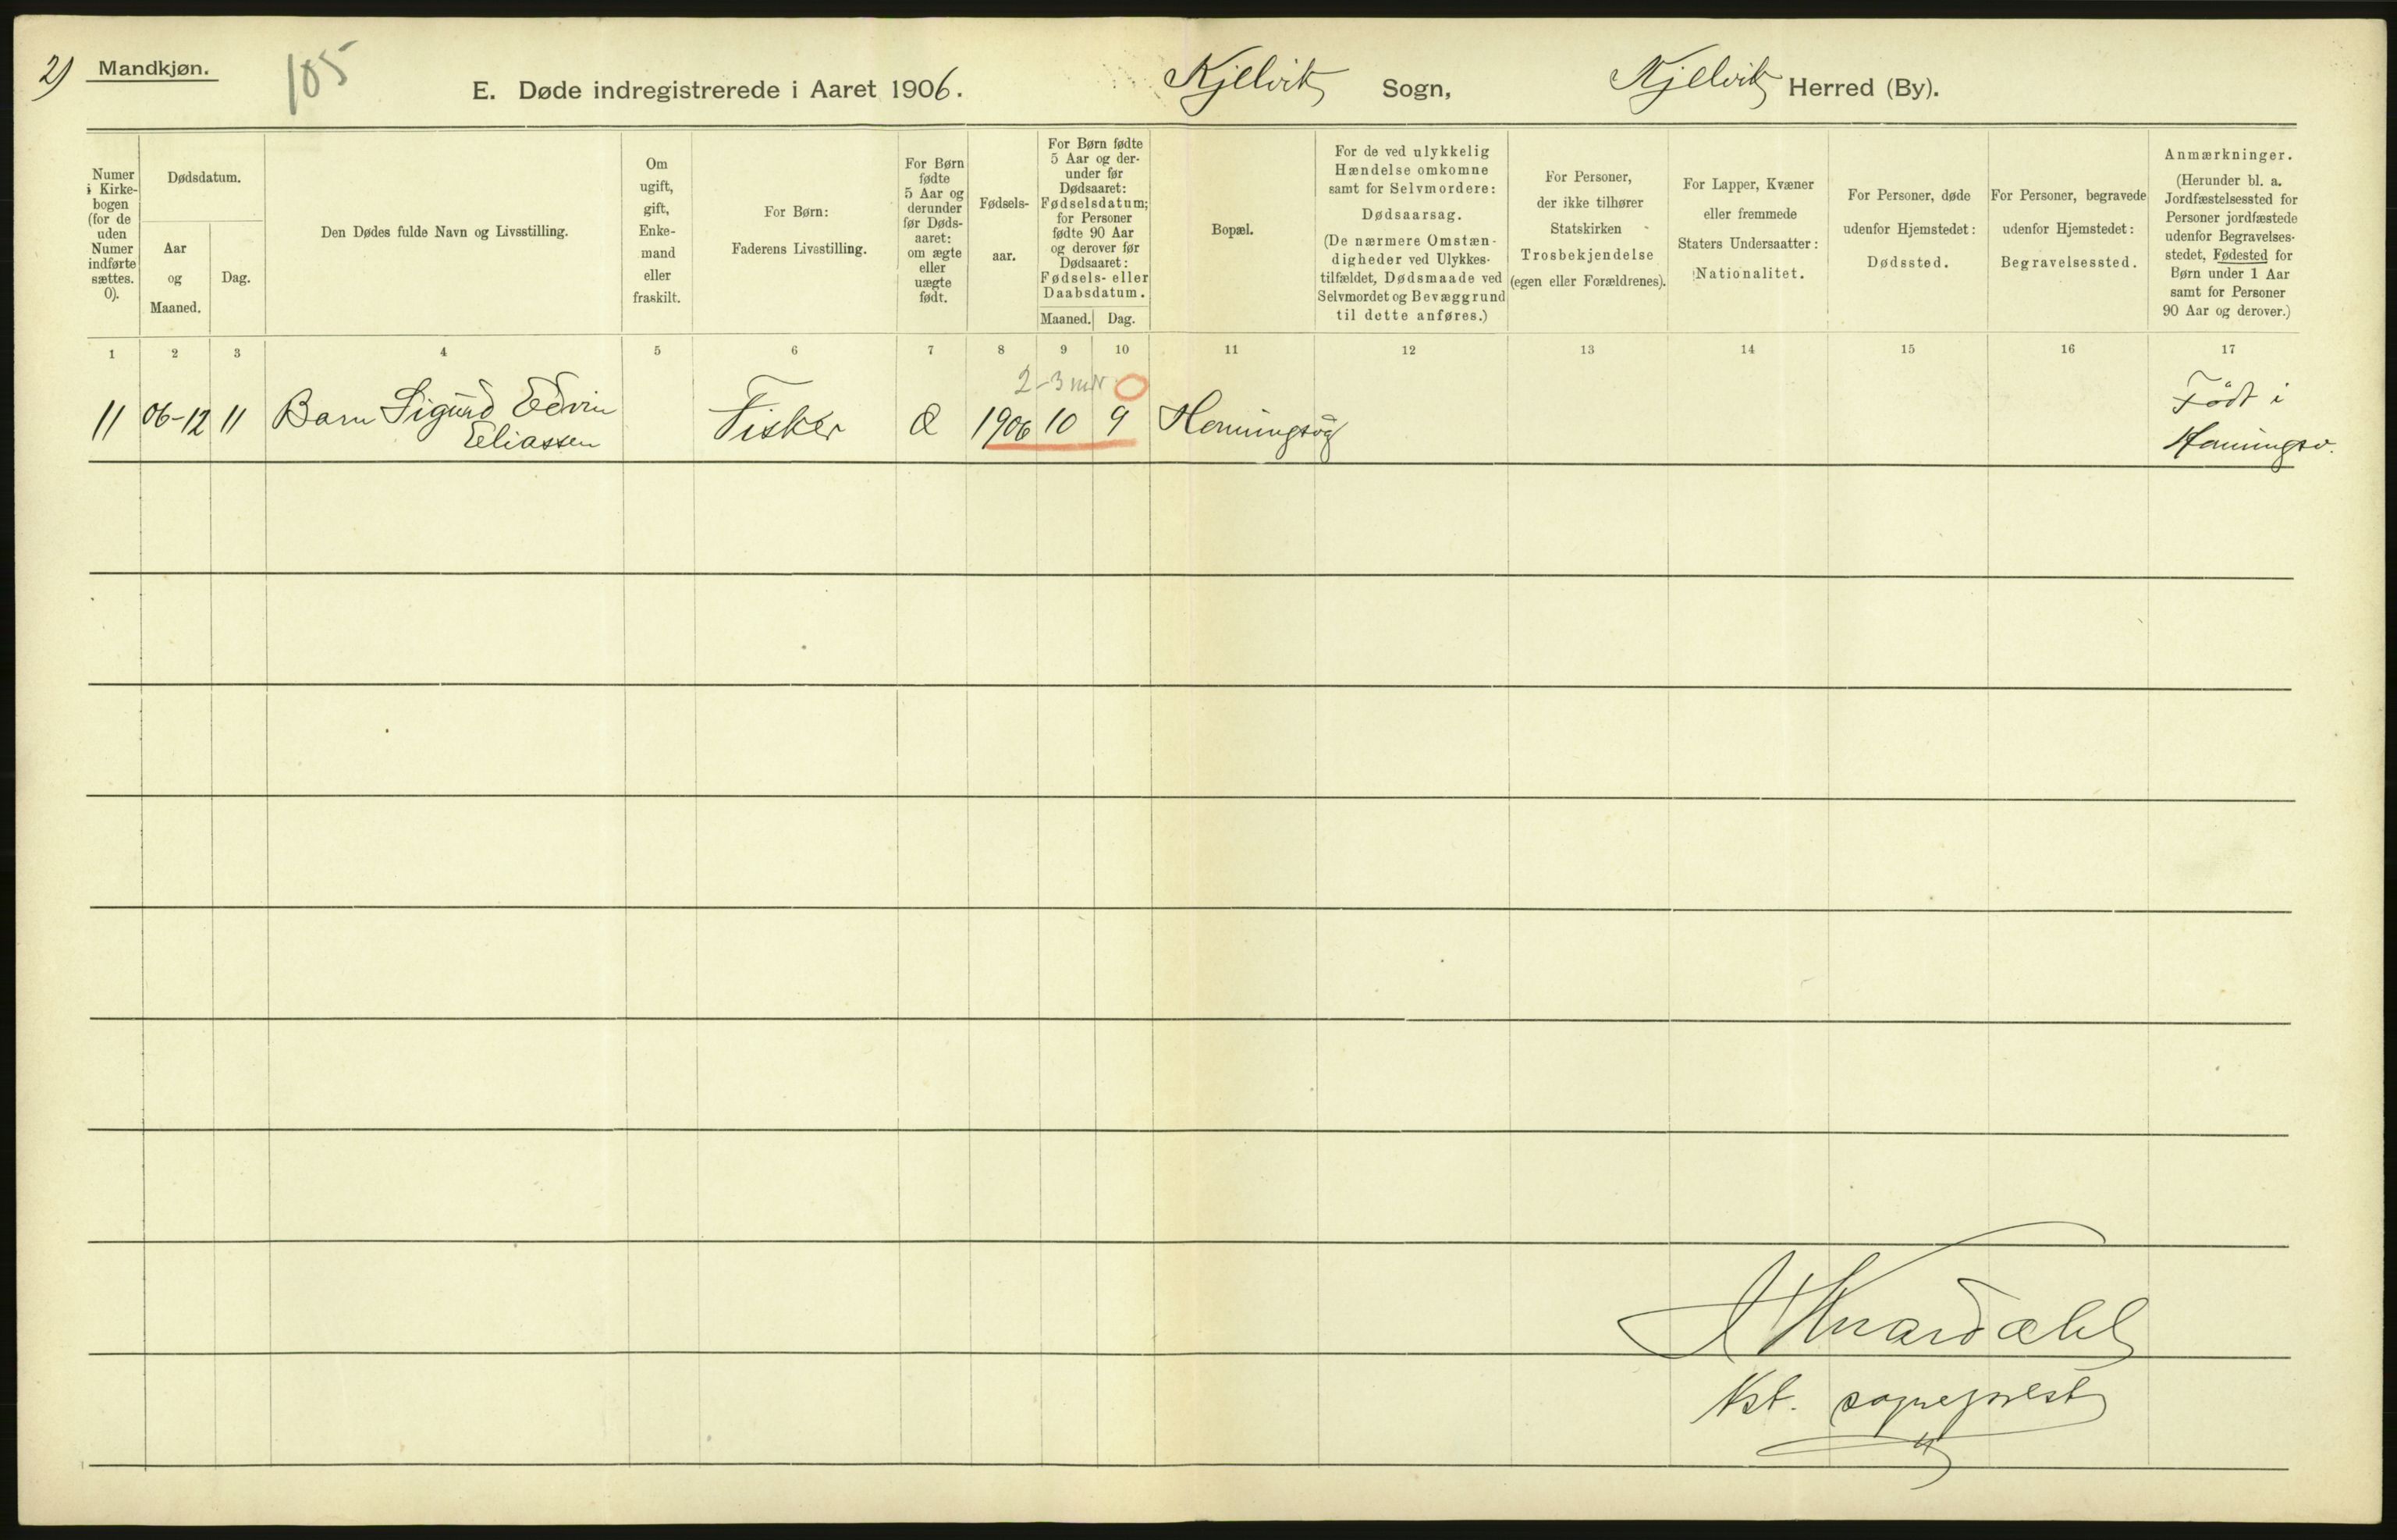 2) Mandkjøn.
105
E. Døde indregistrerede i Aaret 1906. Kjelvik Sogn, Kjelvik Herred (By).
Numer
i Kirke-
bogen
(for de
uden
Numer
indførte
sættes.
0).
Dødsdatum.
Aar
og
Maaned.
Dag.
Den Dødes fulde Navn og Livsstilling.
Om
ugift,
gift,
Enke-
mand
eller
fraskilt.
For Børn:
Faderens Livsstilling.
For Børn
fødte
5 Aar og
derunder
før Døds-
aaret:
om ægte
eller
uægte
født.
Fødsels-
aar.
For Børn fødte
5 Aar og der-
under før
Dødsaaret:
Fødselsdatum;
for Personer
fødte 90 Aar
og derover før
Dødsaaret:
Fødsels- eller
Daabsdatum.
Maaned. Dag.
Bopæl.
For de ved ulykkelig
Hændelse omkomne
samt for Selvmordere:
Dødsaarsag.
(De nærmere Omstæn-
digheder ved Ulykkes-
tilfældet, Dødsmaade ved
Selvmordet og Bevæggrund
til dette anføres.)
For Personer,
der ikke tilhører
Statskirken
Trosbekjendelse
(egen eller Forældrenes).
For Lapper, Kvæner
eller fremmede
Staters Undersaatter:
Nationalitet.
For Personer, døde
udenfor Hjemstedet:
Dødssted.
For Personer, begravede
udenfor Hjemstedet:
Begravelsessted.
Anmærkninger.
(Herunder bl. a.
Jordfæstelsessted for
Personer jordfæstede
udenfor Begravelses-
stedet, Fødested for
Børn under 1 Aar
samt for Personer
90 Aar og derover.)
1 2 3 4 5 6 7 8 9 10 11 12 13 14 15 16 17
2-3 mdr 0
11 06-12 11 Barn Sigurd Edvin
Eliassen
Fisker Æ 1906 10 9 Honningsvåg
Født i
Honningsv.
Kst. sogneprest